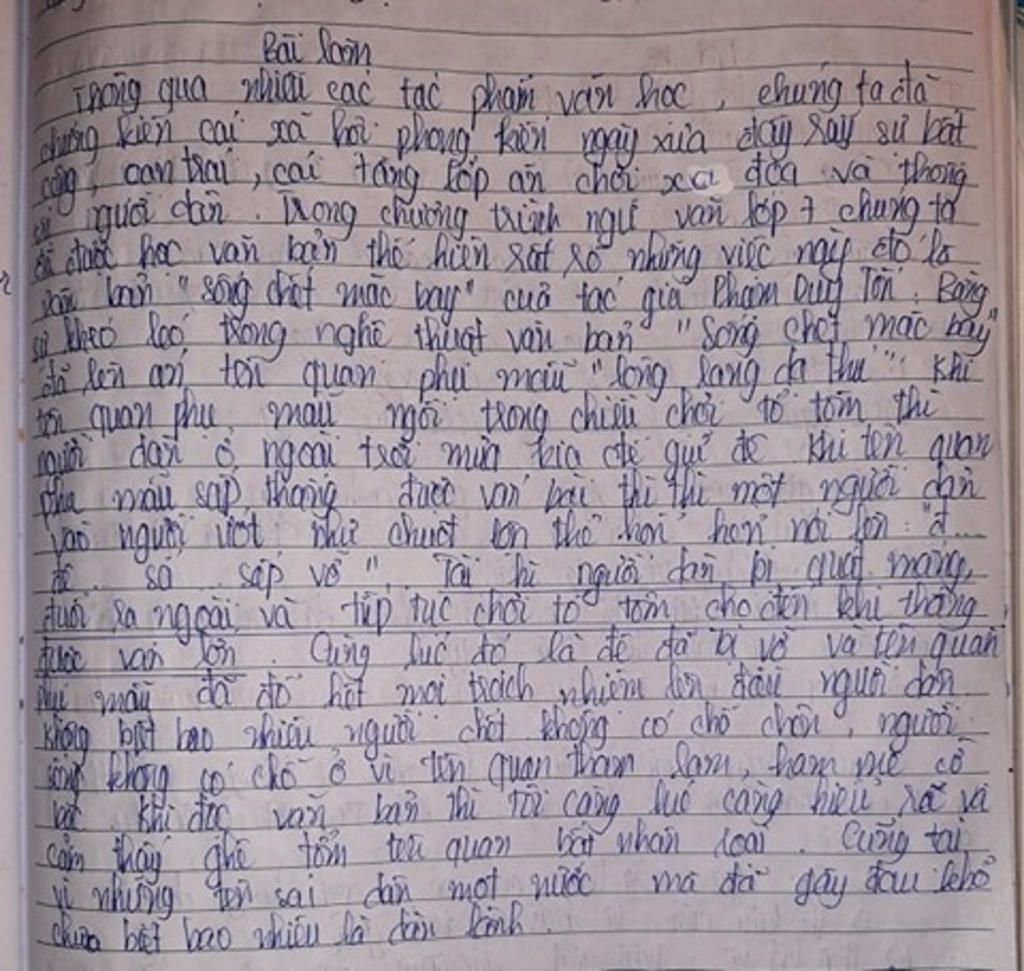 Bài làm
Thông qua nhiều các tác phẩm văn học, chúng ta đã
chứng kiến cái xã hội phong kiến ngày xưa đầy rẫy sự bất
công, oan trái, cái tầng lớp ăn chơi xa đọa và thống
người dân. Trong chương trình ngữ văn lớp 7 chúng ta
đã được học văn bản thể hiện rất rõ những việc này đó là
văn bản "sống chết mặc bay" của tác giả Phạm Duy Tốn. Bằng
sự khéo léo trong nghệ thuật văn bản "Sống chết mặc bay"
đã lên án tên quan phụ mẫu "lòng lang dạ thú". Khi
tên quan phụ mẫu ngồi trong chiếu chơi tổ tôm thì
người dân ở ngoài trời mưa kia để giữ đê. Khi tên quan
phụ mẫu sắp thắng được ván bài thì thì một người dân
vào người ướt như chuột lột thở hổn hển nói lớn: "đ...
đê... sắp vỡ". Tài hì người dân bị quát mắng,
đuổi ra ngoài và tiếp tục chơi tổ tôm cho đến khi thắng
được ván lớn. Cùng lúc đó là đê đã bị vỡ và tên quan
phụ mẫu đã đổ hết mọi trách nhiệm lên đầu người dân
không biết bao nhiêu người chết không có chỗ chôn, người
sống không có chỗ ở vì tên quan tham lam, ham mê cờ
bạc. Khi đọc văn bản thì tôi càng lúc càng hiểu rõ và
cảm thấy ghê tởm tên quan bất nhân loại. Cũng tại
vì những tên sai dân một nước mà đã gây đau khổ
chưa biết bao nhiêu là dân lành.